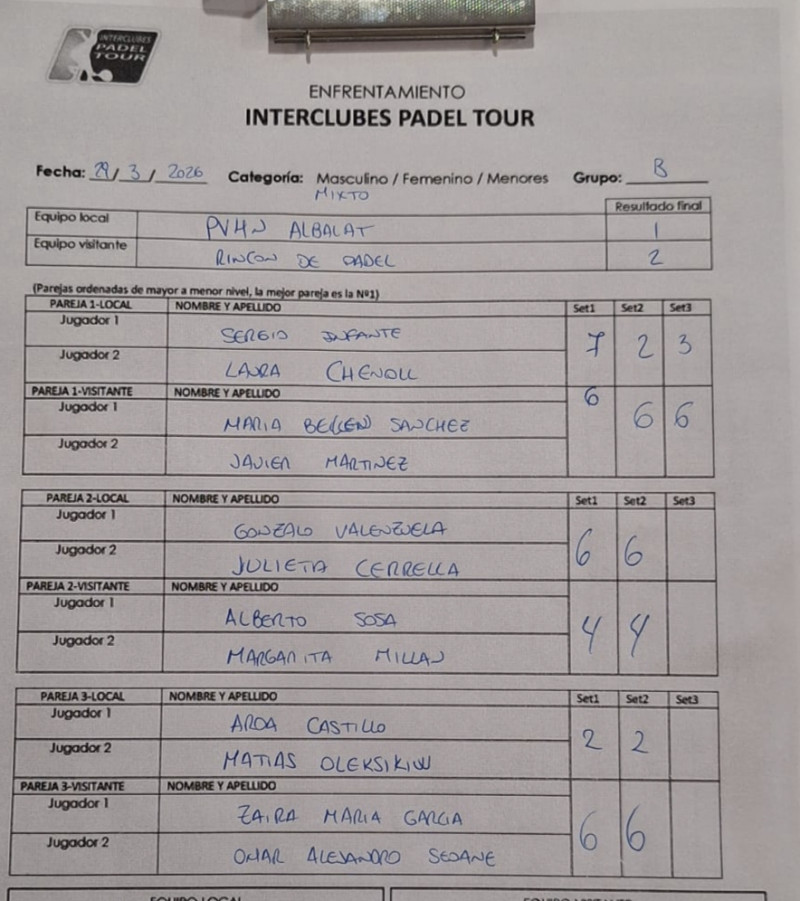 INTERCLUBES
PADEL
TOUR
ENFRENTAMIENTO
INTERCLUBES PADEL TOUR
Fecha: 29 / 3 / 2026 Categoría: Masculino / Femenino / Menores Grupo: B
MIXTO
Resultado final
Equipo local PVHN ALBALAT 1
Equipo visitante RINCON DE PADEL 2
(Parejas ordenadas de mayor a menor nivel, la mejor pareja es la Nº1)
PAREJA 1-LOCAL NOMBRE Y APELLIDO Set1 Set2 Set3
Jugador 1 SERGIO INFANTE 7 2 3
Jugador 2 LAURA CHENOLL
PAREJA 1-VISITANTE NOMBRE Y APELLIDO 6 6 6
Jugador 1 MARIA BE(LEN) SANCHEZ
Jugador 2 JAVIER MARTINEZ
PAREJA 2-LOCAL NOMBRE Y APELLIDO Set1 Set2 Set3
Jugador 1 GONZALO VALENZUELA 6 6
Jugador 2 JULIETA CERRELLA
PAREJA 2-VISITANTE NOMBRE Y APELLIDO
Jugador 1 ALBERTO SOSA 4 4
Jugador 2 MARGARITA MILLAN
PAREJA 3-LOCAL NOMBRE Y APELLIDO Set1 Set2 Set3
Jugador 1 AROA CASTILLO 2 2
Jugador 2 MATIAS OLEKSIKIW
PAREJA 3-VISITANTE NOMBRE Y APELLIDO
Jugador 1 ZAIRA MARIA GARCIA 6 6
Jugador 2 OMAR ALEJANDRO SEOANE
EQUIPO LOCAL EQUIPO VISITANTE